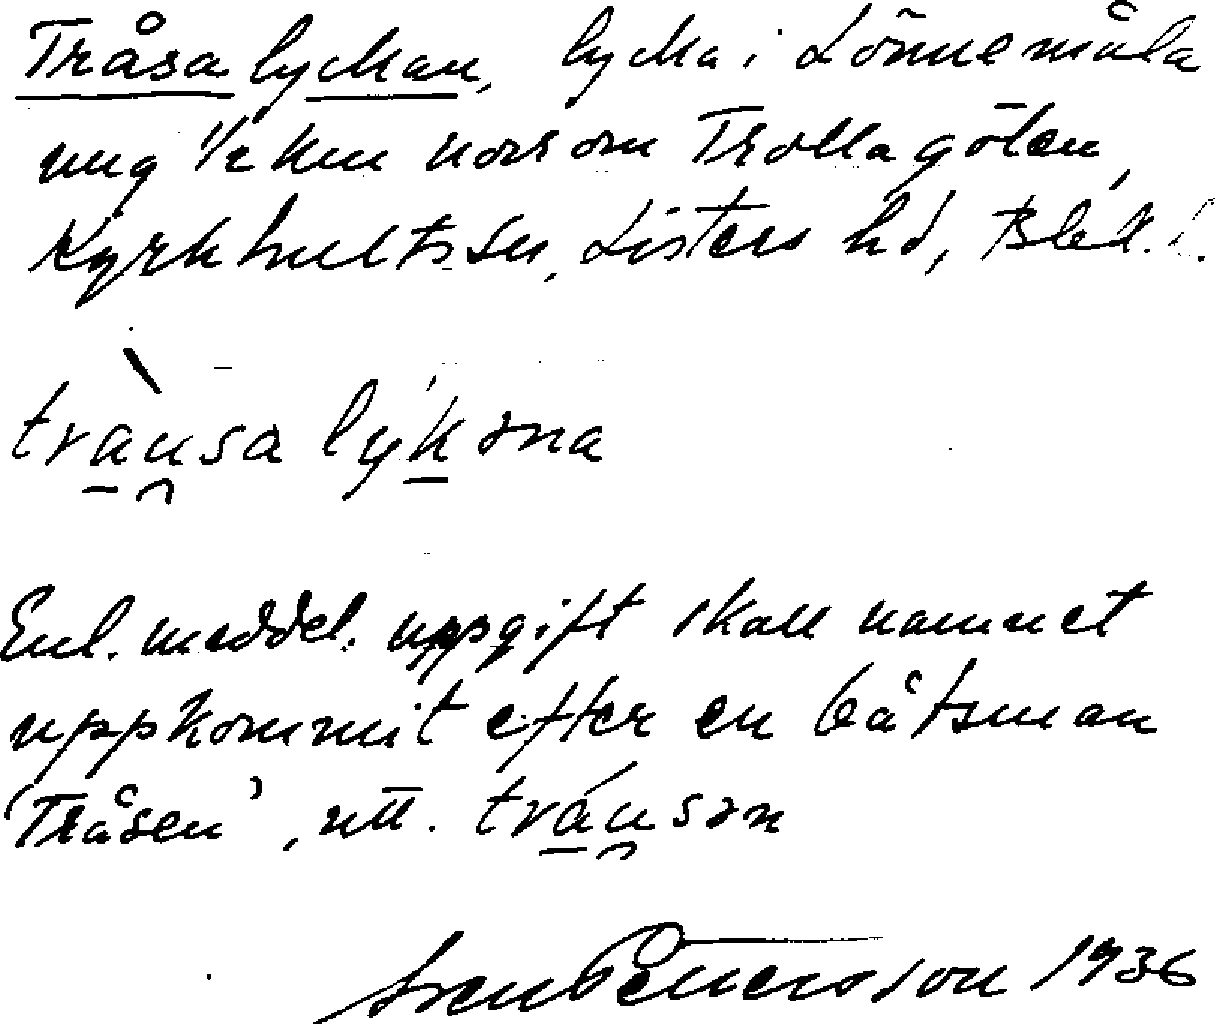 Tråsa lyckan, lycka i Lönnemåla
ung 1/2 km norr om Trollagölen,
Kyrkhults sn, Listers hd, Blek. l.
tràu̯sa lýkəna
Enl. meddel. uppgift skall namnet
uppkommit efter en båtsman
'Tråsen', utt. tráu̯sən
Sven Pettersson 1936